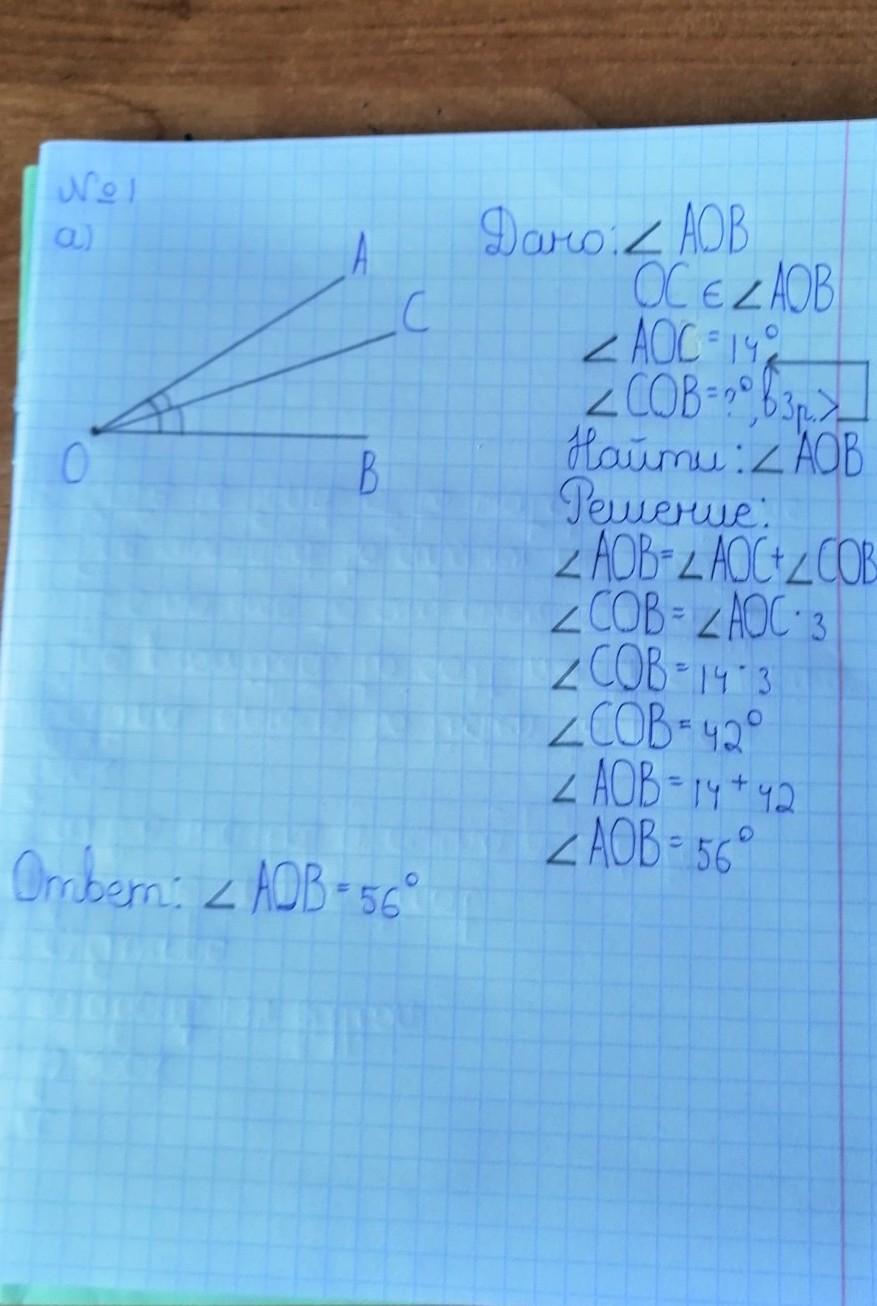 №1
а)
A
C
O
B
Дано: ∠AOB
OC ∈ ∠AOB
∠AOC = 14°
∠COB = ?°, в 3 р. >
Найти: ∠AOB
Решение:
∠AOB = ∠AOC + ∠COB
∠COB = ∠AOC · 3
∠COB = 14 · 3
∠COB = 42°
∠AOB = 14 + 42
∠AOB = 56°
Ответ: ∠AOB = 56°